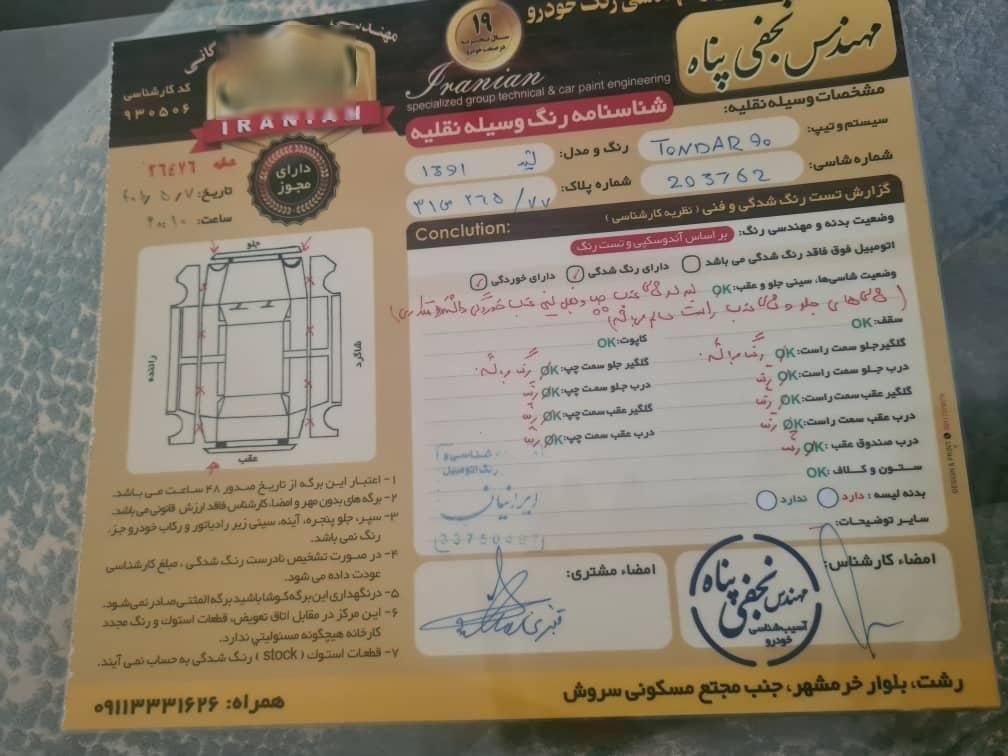 مهندسی رنگ خودرو
مهندس نجفی پناه
۱۹
سال تجربه
در صنعت خودرو
Iranian
specialized group technical & car paint engineering
شناسنامه رنگ وسیله نقلیه
کد کارشناسی
۹۳۰۵۰۶
IRANIAN
دارای
مجوز
تاریخ:
ساعت:
مشخصات وسیله نقلیه:
سیستم و تیپ: TONDAR 90
رنگ و مدل: ۱۳۹۱
شماره شاسی: 203762
شماره پلاک: ۷۷ / ۲۶۵
گزارش تست رنگ شدگی و فنی (نظریه کارشناسی)
Conclution:
وضعیت بدنه و مهندسی رنگ: بر اساس آندوسکپی و تست رنگ
اتومبیل فوق فاقد رنگ شدگی می باشد
دارای رنگ شدگی
دارای خوردگی
وضعیت شاسی‌ها، سینی جلو و عقب: OK
سقف: OK
کاپوت: OK
گلگیر جلو سمت راست: OK رنگ
گلگیر جلو سمت چپ: OK رنگ
درب جلو سمت راست: OK رنگ
درب جلو سمت چپ: OK رنگ
گلگیر عقب سمت راست: OK رنگ
گلگیر عقب سمت چپ: OK رنگ
درب عقب سمت راست: OK رنگ
درب عقب سمت چپ: OK رنگ
درب صندوق عقب: OK رنگ
ستون و کلاف: OK
بدنه لیسه: دارد ندارد
سایر توضیحات:
امضاء کارشناس:
امضاء مشتری:
مهندس نجفی پناه
آسیب‌شناسی
خودرو
ایرانیان
جلو
راننده
شاگرد
عقب
۱- اعتبار این برگه از تاریخ صدور ۴۸ ساعت می باشد.
۲- برگه های بدون مهر و امضاء کارشناس فاقد ارزش قانونی می باشد.
۳- سپر، جلو پنجره، آینه، سینی زیر رادیاتور و رکاب خودرو جزء
رنگ نمی باشد.
۴- در صورت تشخیص نادرست رنگ شدگی، مبلغ کارشناسی
عودت داده می شود.
۵- در نگهداری این برگه کوشا باشید برگه المثنی صادر نمی‌شود.
۶- این مرکز در مقابل اتاق تعویض، قطعات استوک و رنگ مجدد
کارخانه هیچگونه مسئولیتی ندارد.
۷- قطعات استوک (stock) رنگ شدگی به حساب نمی آیند.
رشت، بلوار خرمشهر، جنب مجتمع مسکونی سروش
همراه: ۰۹۱۱۳۳۳۱۶۲۶